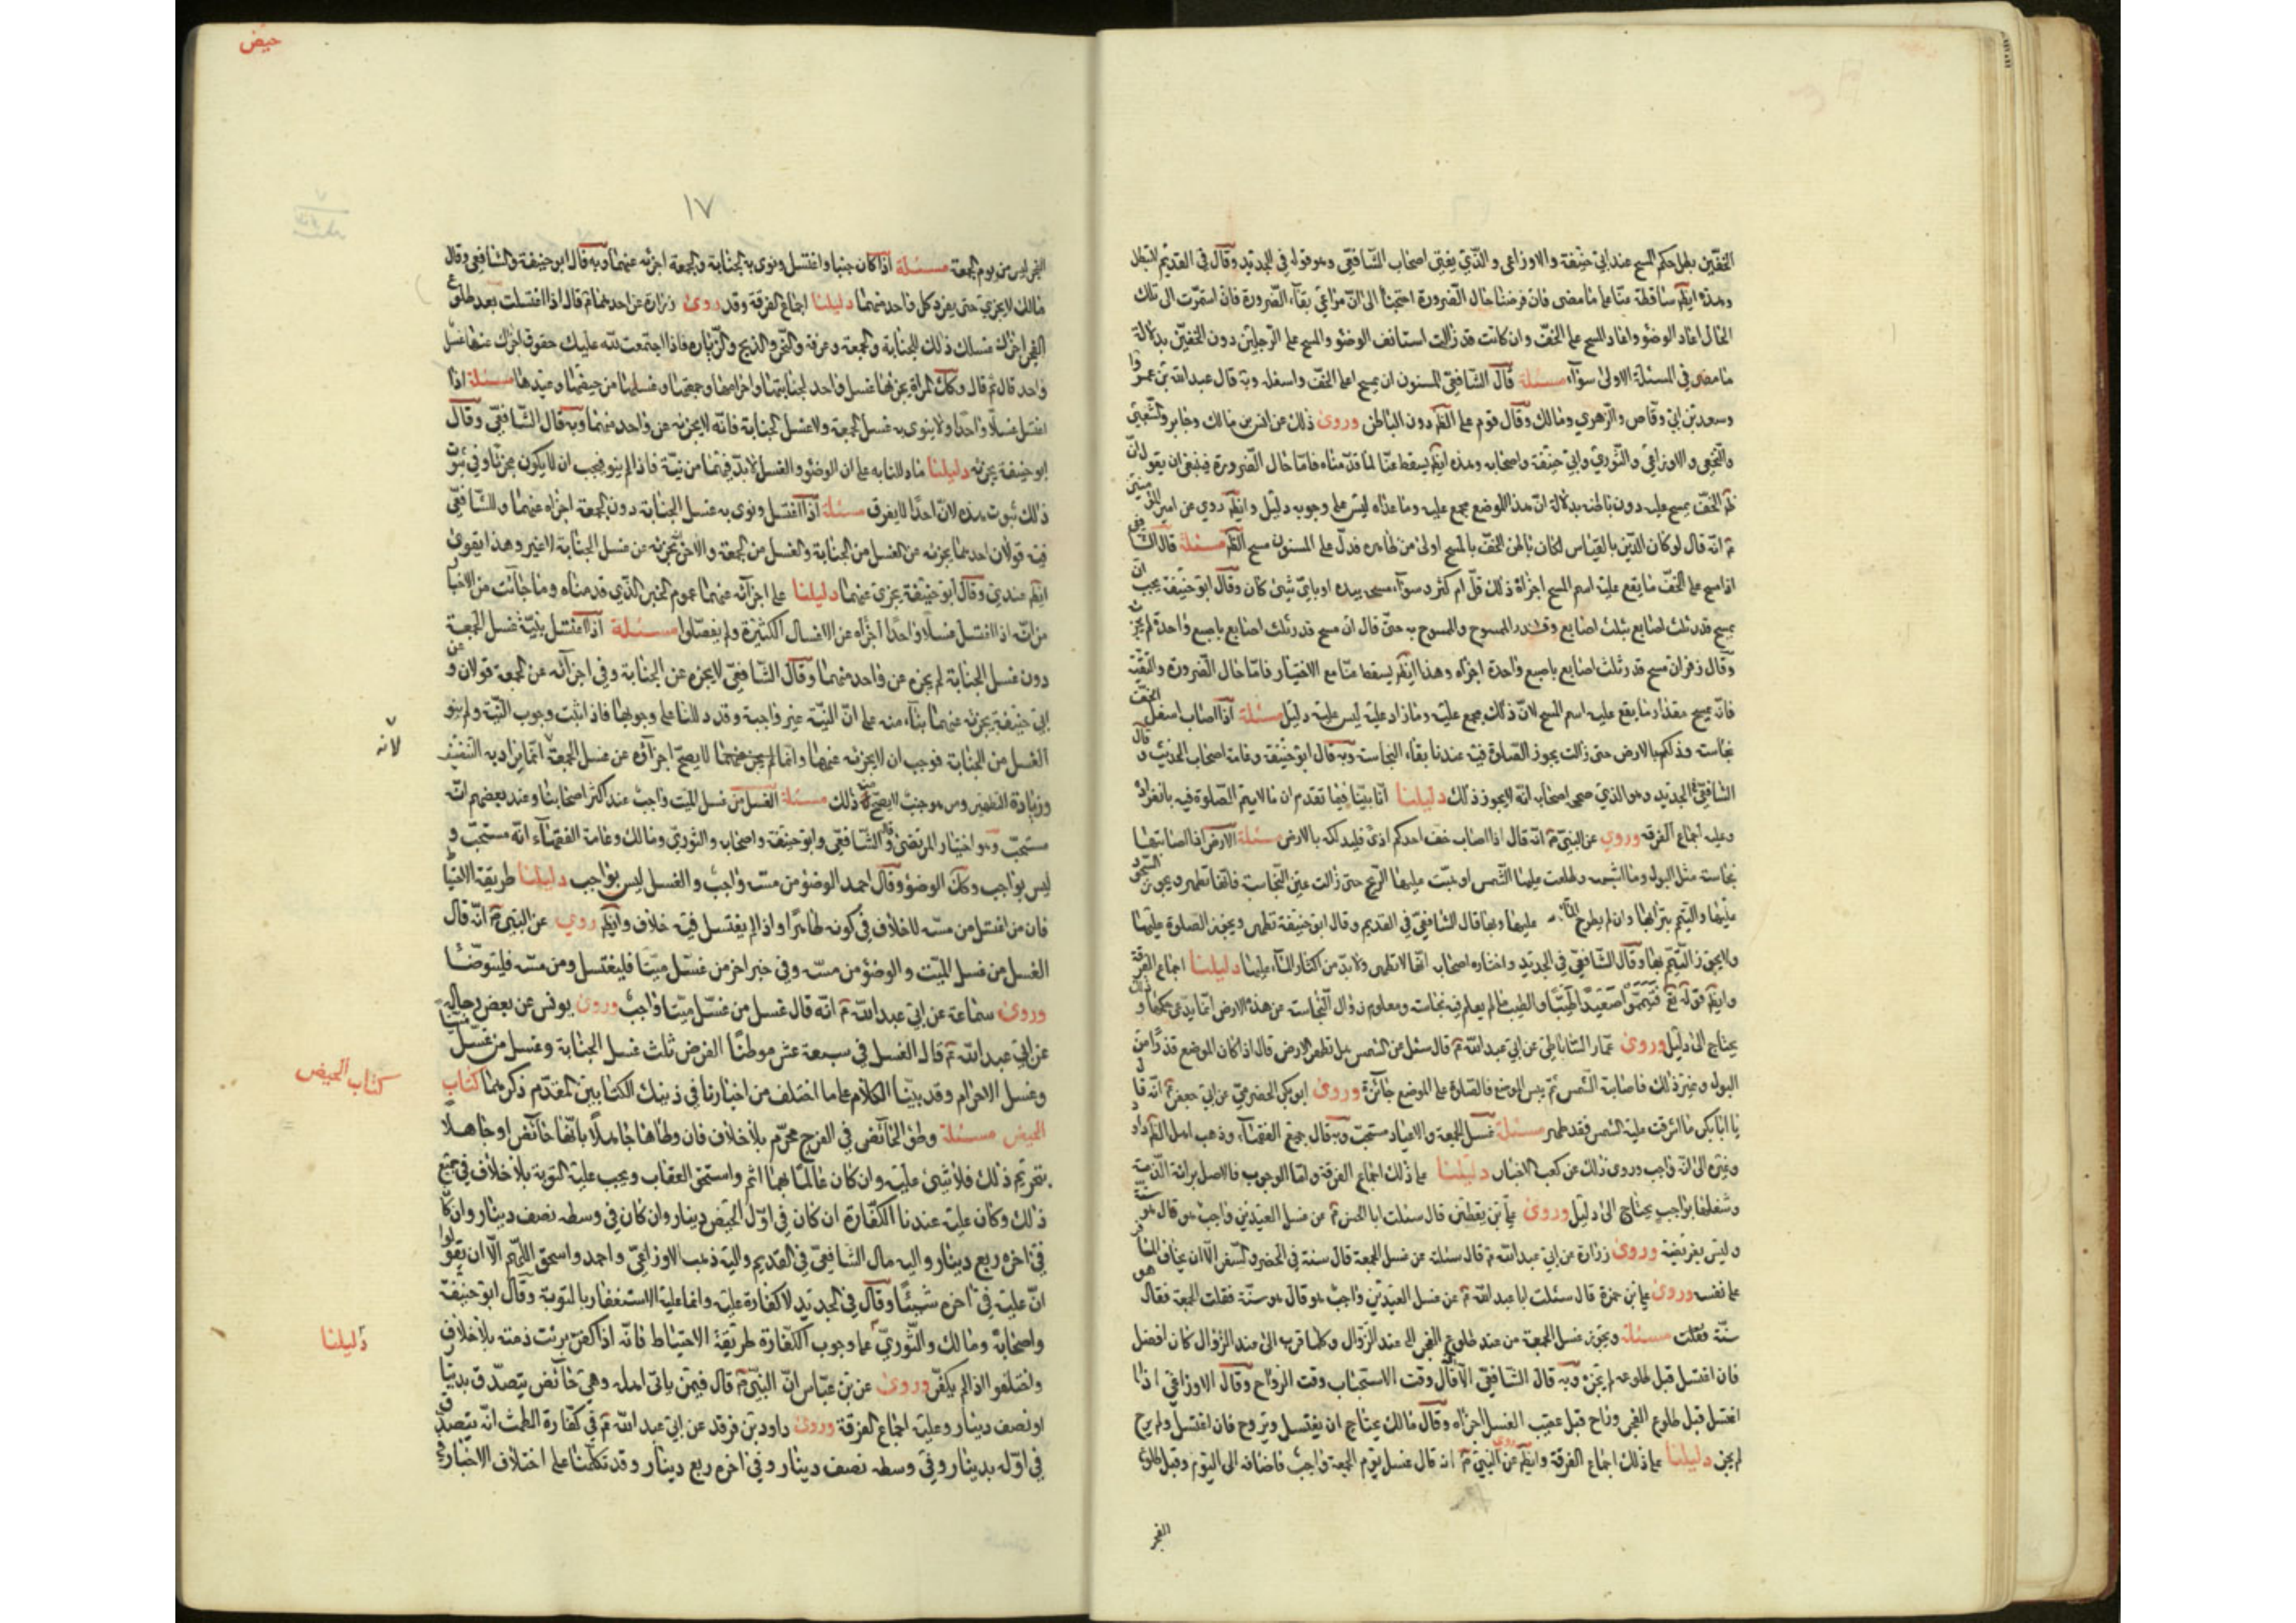 الخفين بطل حكم المسح عند ابي حنيفة والاوزاعي والذي يفتي اصحاب الشافعي وهو قوله في الجديد وقال في القديم لا تبطل
وهذه ايضا ساقطة عنا على ما مضى فان فرضنا حال الضرورة احتجنا الى ان نراعي بقاء الضرورة فان استمرت الى تلك
الحال اعاد الوضوء واعاد المسح على الخف وان كانت قد زالت استانف الوضوء والمسح على الرجلين دون الخفين بدلالة
ما مضى في المسئلة الاولى سواء مسئلة قال الشافعي المسنون ان يمسح اعلى الخف واسفله وبه قال عبد الله بن عمر
وسعد بن ابي وقاص والزهري ومالك وقال قوم على الظهر دون الباطن وروى ذلك عن انس بن مالك وجابر والشعبي
والنخعي والاوزاعي والثوري وابي حنيفة واصحابه وهذه ايضا يسقط عنا لما قدمناه فاما حال الضرورة فينبغي ان يقول ان
ظهر الخف يمسح عليه دون باطنه بدلالة ان هذا الموضع مجمع عليه وما عداه ليس على وجوبه دليل وايضا روي عن امير المؤمنين
انه قال لو كان الدين بالقياس لكان باطن الخف بالمسح اولى من ظاهره فدل على المسنون مسح الظهر مسئلة قال الشافعي
اذا مسح على الخف ما يقع عليه اسم المسح اجزاه ذلك قل ام كثر وسواء مسحه بيده او باي شيئ كان وقال ابو حنيفة يجب ان
يمسح قدر ثلث اصابع بثلث اصابع والممسوح به حتى قال ان مسح قدر ثلث اصابع باصبع واحدة لم يجز
وقال زفر ان مسح قدر ثلث اصابع باصبع واحدة اجزاه وهذا ايضا يسقط عنا مع الاختيار فاما حال الضرورة والتقية
فانه يمسح مقدار ما يقع عليه اسم المسح لان ذلك مجمع عليه وما زاد عليه ليس عليه دليل مسئلة اذا اصاب اسفل الخف
نجاسة فدلكها بالارض حتى زالت يجوز الصلوة فيه عندنا بقاء النجاسة وبه قال ابو حنيفة وعامة اصحاب الحديث وقال
الشافعي في الجديد وهو الذي صححه اصحابه انه لا يجوز ذلك دليلنا انا بينا فيما تقدم ان ما لا يتم الصلوة فيه بانفراده
وعليه اجماع الفرقة وروي عن النبي انه قال اذا اصاب خف احدكم اذى فليدلكه بالارض مسئلة الارض اذا اصابتها
نجاسة مثل البول وما اشبهه وطلعت عليها الشمس او هبت عليها الريح حتى زالت عين النجاسة فانها تطهر ويجوز السجود
عليها والتيمم بترابها وان لم يطرح عليها وبها قال الشافعي في القديم وقال ابو حنيفة تطهر ويجوز الصلوة عليها
ولا يجوز التيمم بها وقال الشافعي في الجديد واختاره اصحابه انها لا تطهر ولا بد من اكثار الماء عليها دليلنا اجماع الفرقة
وايضا قوله تع فتيمموا صعيدا طيبا والطيب ما لم يعلم فيه نجاسة ومعلوم زوال النجاسة عن هذه الارض
يحتاج الى دليل وروى عمار الساباطي عن ابي عبد الله قال سئل عن الشمس هل تطهر الارض قال اذا كان الموضع قذرا من
البول وغير ذلك فاصابته الشمس ثم يبس الموضع فالصلوة على الموضع جائزة وروى ابو بكر الحضرمي عن ابي جعفر انه قال
يا ابا بكر ما اشرقت عليه الشمس فقد طهر مسئلة غسل الجمعة والاعياد مستحب وبه قال جميع الفقهاء وذهب اهل الظاهر داود
وغيره الى انه واجب وروى ذلك عن كعب الاحبار دليلنا على ذلك اجماع الفرقة واما الوجوب فالاصل برائة الذمة
وشغلها بواجب يحتاج الى دليل وروى علي بن يقطين قال سئلت ابا الحسن عن غسل العيدين واجب هو قال هو سنة
وليس بفريضة وروى زرارة عن ابي عبد الله قال سئلته عن غسل الجمعة قال سنة في الحضر والسفر الا ان يخاف المسافر
على نفسه وروى علي بن حمزة قال سئلت ابا عبد الله عن غسل العيدين واجب هو قال هو سنة فقلت الجمعة فقال هو
سنة فقلت مسئلة ويجوز غسل الجمعة من عند طلوع الفجر الى عند الزوال وكلما قرب الى عند الزوال كان افضل
فان اغتسل قبل طلوعه لم يجزه وبه قال الشافعي الا قال وقت الاستحباب وقت الرواح وقال الاوزاعي اذا
اغتسل قبل طلوع الفجر وراح قبل عقيب الغسل اجزاه وقال مالك يحتاج ان يغتسل ويروح فان اغتسل ولم يرح
لم يجز دليلنا على ذلك اجماع الفرقة وايضا روى عن النبي انه قال غسل يوم الجمعة واجب فاضافه الى اليوم وقبل طلوع
الفجر
حيض
١٧
الفجر ليس من يوم الجمعة مسئلة اذا كان جنبا واغتسل ونوى به الجنابة والجمعة اجزئه عنهما وبه قال ابو حنيفة والشافعي وقال
مالك لا يجزي حتى يفرد كل واحد منهما دليلنا اجماع الفرقة وقد روى زرارة عن احدهما قال اذا اغتسلت بعد طلوع
الفجر اجزك غسلك ذلك للجنابة والجمعة وعرفة والنحر والذبح والزيارة فاذا اجتمعت لله عليك حقوق اجزك عنها غسل
واحد قال ثم قال وكك المراة يجزئها غسل واحد لجنابتها واحرامها وجمعتها وغسلها من حيضها وعيدها مسئلة اذا
اغتسل غسلا واحدا ولا ينوى به غسل الجمعة ولا غسل الجنابة فانه لا يجزئه عن واحد منهما وبه قال الشافعي وقال
ابو حنيفة يجزئه دليلنا ما دللنا به على ان الوضوء والغسل لا بد فيهما من نية فاذا لم ينو فيجب ان لا يكون مجزئا وفي ثبوت
ذلك ثبوت هذه لان احدا لا يفرق مسئلة اذا اغتسل ونوى به غسل الجنابة دون الجمعة اجزاه عنهما وللشافعي
فيه قولان احدهما يجزئه عن الغسل من الجنابة والغسل من الجمعة والاخر يجزئه عن غسل الجنابة لا غير وهذا يقوى
ايضا عندي وقال ابو حنيفة يجزي عنهما دليلنا على اجزائه عنهما عموم الخبر الذي قدمناه وما جائت من الاخبار
من انه اذا اغتسل غسلا واحدا اجزاه عن الاغسال الكثيرة ولم يفصلوا مسئلة اذا اغتسل بنية غسل الجمعة
دون غسل الجنابة لم يجزه عن واحد منهما وقال الشافعي لا يجزه عن الجنابة وفي اجزائه عن الجمعة قولان وعن
ابي حنيفة يجزئه عنهما بناء منه على ان النية غير واجبة وقد دللنا على وجوبها فاذا اثبت وجوب النية ولم ينو
الغسل من الجنابة فوجب ان لا يجزئه عنها وانما لم يجز عنهما لا يصح اجزاؤه عن غسل الجمعة انما يراد به التنظيف
لانه
وزيادة التطهير ومن هو جنب لا يصح فيه ذلك مسئلة الغسل من غسل الميت واجب عند اكثر اصحابنا وعند بعضهم انه
مستحب وهو اختيار المرتضى وقال الشافعي وابو حنيفة واصحابه والثوري ومالك وعامة الفقهاء انه مستحب و
ليس بواجب وكك الوضوء وقال احمد الوضوء من مسه واجب والغسل ليس بواجب دليلنا طريقة الاحتياط
فان من اغتسل من مسه لا خلاف في كونه طاهرا واذا لم يغتسل فيه خلاف وايضا روي عن النبي انه قال
الغسل من غسل الميت والوضوء من مسه وفي خبر اخر من غسل ميتا فليغتسل ومن مسه فليتوضا
وروى سماعة عن ابي عبد الله انه قال غسل من غسل ميتا واجب وروى يونس عن بعض رجاله
عن ابي عبد الله قال الغسل في سبعة عشر موطنا الفرض ثلث غسل الجنابة وغسل من غسل ميتا
وغسل الاحرام وقد بينا الكلام على ما اختلف من اخبارنا في ذينك الكتابين المقدم ذكرهما كتاب
كتاب الحيض
الحيض مسئلة وطئ الحائض في الفرج محرم بلا خلاف فان وطاها جاهلا بانها حائض او جاهلا
بتحريم ذلك فلا شيئ عليه وان كان عالما بهما اثم واستحق العقاب ويجب عليه التوبة بلا خلاف في جميع
ذلك وكان عليه عندنا الكفارة ان كان في اول الحيض دينار وان كان في وسطه نصف دينار وان كان
في اخره ربع دينار واليه مال الشافعي في القديم واليه ذهب الاوزاعي واحمد واسحق اللهم الا ان يقولوا
ان عليه في اخره شيئا وقال في الجديد لا كفارة عليه وانما عليه الاستغفار بالتوبة وقال ابو حنيفة
واصحابه ومالك والثوري على وجوب الكفارة طريقة الاحتياط فانه اذا كفر برئت ذمته بلا خلاف
دليلنا
واختلفوا اذا لم يكفر وروى عن بن عباس ان النبي قال فيمن ياتي اهله وهي حائض يتصدق بدينار
او نصف دينار وعليه اجماع الفرقة وروى داود بن فرقد عن ابي عبد الله في كفارة الطمث انه يتصدق
في اوله بدينار وفي وسطه نصف دينار وفي اخره ربع دينار وقد تكلمنا على اختلاف الاخبار في